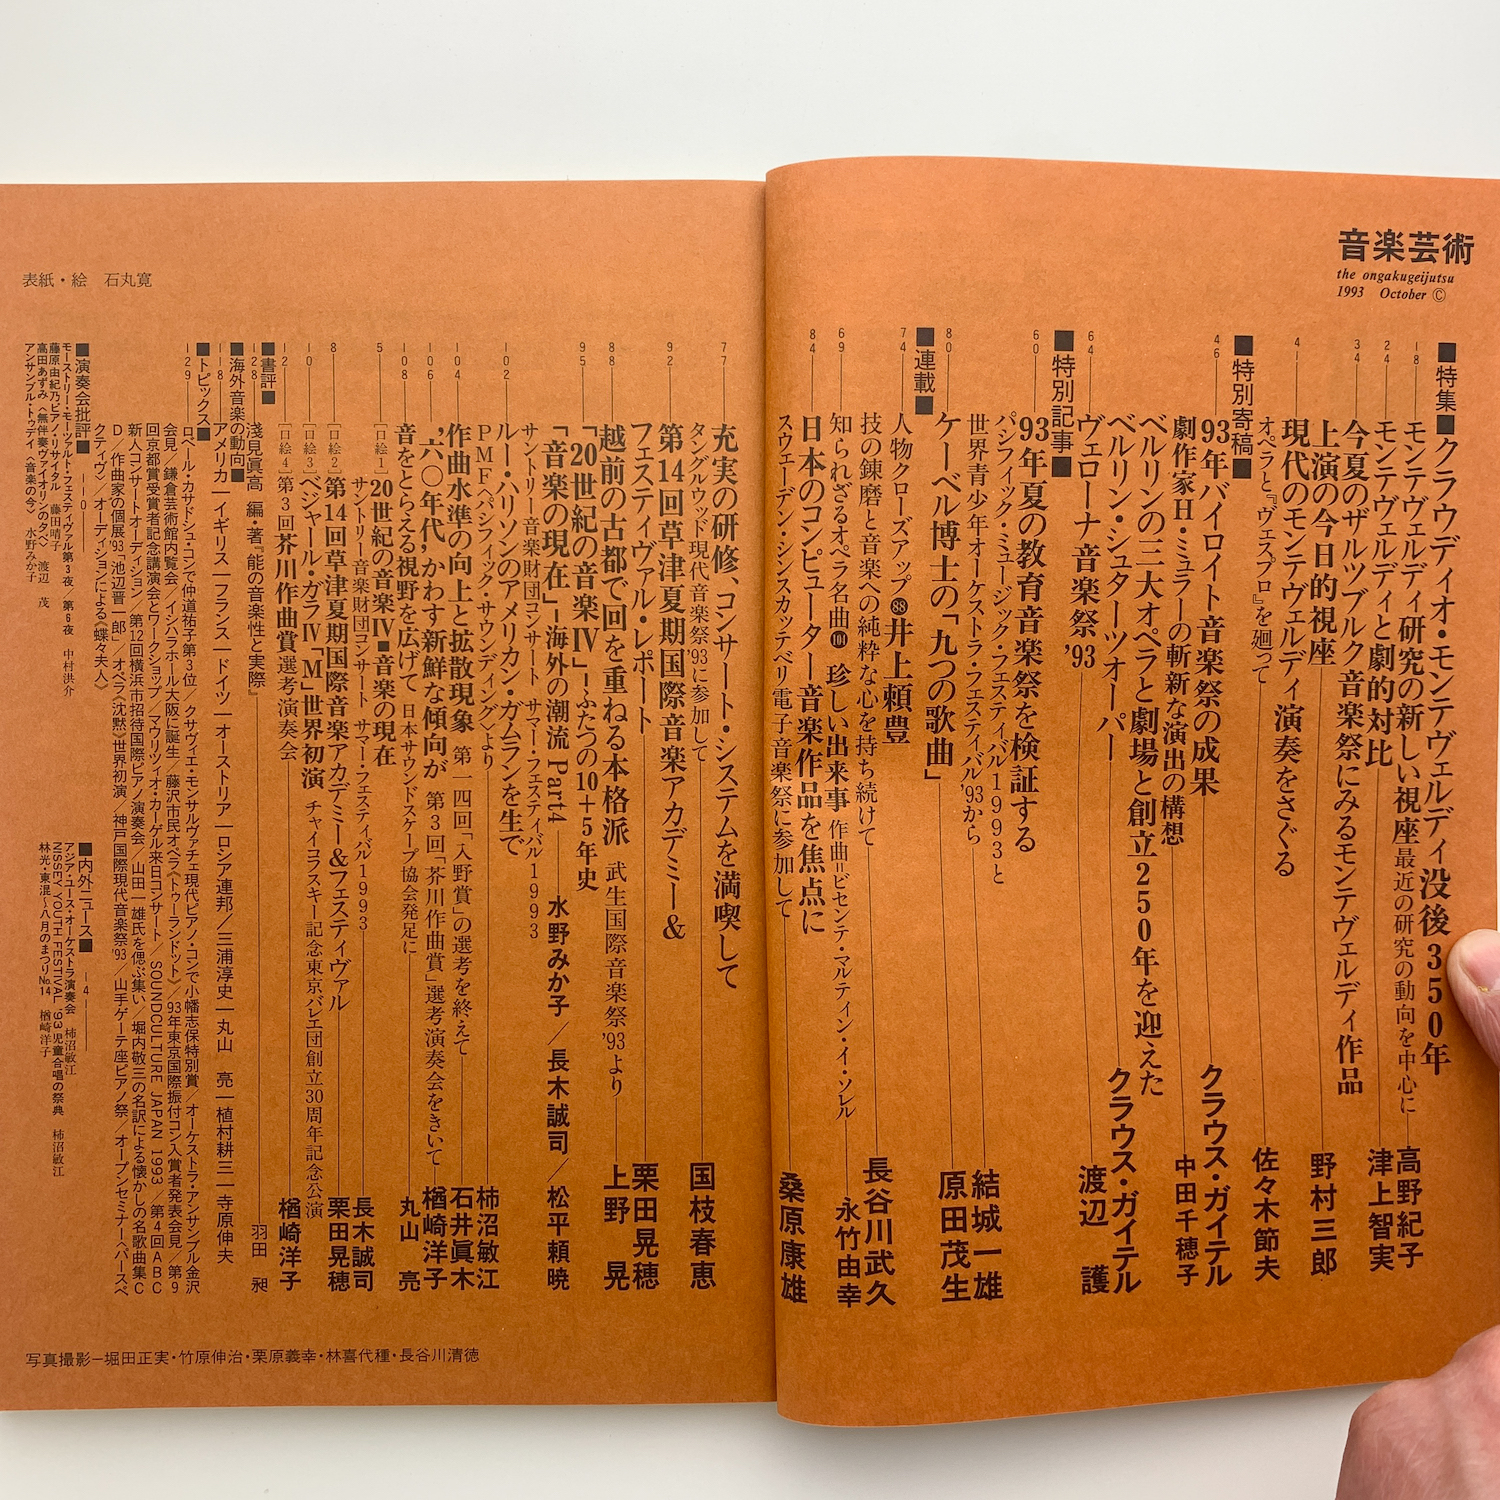 音楽芸術
the ongakugeijutsu
1993 October ©
■特集■クラウディオ・モンテヴェルディ没後350年
18 モンテヴェルディ研究の新しい視座 最近の研究の動向を中心に 高野紀子
24 モンテヴェルディと劇的対比 津上智実
34 今夏のザルツブルク音楽祭にみるモンテヴェルディ作品
上演の今日的視座 野村三郎
41 現代のモンテヴェルディ演奏をさぐる
オペラと『ヴェスプロ』を廻って 佐々木節夫
■特別寄稿■
46 93年バイロイト音楽祭の成果 クラウス・ガイテル
劇作家H・ミュラーの斬新な演出の構想 中田千穂子
ベルリンの三大オペラと劇場と創立250年を迎えた
ベルリン・シュターツオーパー クラウス・ガイテル
64 ヴェローナ音楽祭'93 渡辺 護
■特別記事■
60 93年夏の教育音楽祭を検証する
パシフィック・ミュージック・フェスティバル1993と
世界青少年オーケストラ・フェスティバル'93から 結城一雄
80 ケーベル博士の「九つの歌曲」 原田茂生
■連載■
74 人物クローズアップ88 井上頼豊
技の錬磨と音楽への純粋な心を持ち続けて 長谷川武久
69 知られざるオペラ名曲104 珍しい出来事 作曲=ビセンテ・マルティン・イ・ソレル 永竹由幸
84 日本のコンピューター音楽作品を焦点に
スウェーデン・シンスカッテベリ電子音楽祭に参加して 桑原康雄
77 充実の研修、コンサート・システムを満喫して
タングルウッド現代音楽祭'93に参加して 国枝春恵
92 第14回草津夏期国際音楽アカデミー&
フェスティヴァル・レポート 栗田晃穂
88 越前の古都で回を重ねる本格派 武生国際音楽祭'93より 上野 晃
95 「20世紀の音楽Ⅳ」—ふたつの10+5年史
「音楽の現在」—海外の潮流 Part4 水野みか子/長木誠司/松平頼暁
サントリー音楽財団コンサート サマー・フェスティバル1993
102 ルー・ハリソンのアメリカン・ガムランを生で
PMF〈パシフィック・サウンディング〉より 柿沼敏江
104 作曲水準の向上と拡散現象 第一四回「入野賞」の選考を終えて 石井眞木
106 '六〇年代'かわす新鮮な傾向が 第3回「芥川作曲賞」選考演奏会をきいて 楢崎洋子
108 音をとらえる視野を広げて 日本サウンドスケープ協会発足に 丸山 亮
5 [口絵1] 20世紀の音楽Ⅳ■音楽の現在
サントリー音楽財団コンサート サマー・フェスティバル1993 長木誠司
8 [口絵2] 第14回草津夏期国際音楽アカデミー&フェスティヴァル 栗田晃穂
10 [口絵3] ベジャール・ガラⅣ「M」世界初演 チャイコフスキー記念東京バレエ団創立30周年記念公演
12 [口絵4] 第3回芥川作曲賞選考演奏会 楢崎洋子
■書評■
128 淺見眞高 編・著『能の音楽性と実際』 羽田 昶
■海外音楽の動向■
118 アメリカ|イギリス|フランス|ドイツ|オーストリア|ロシア連邦/三浦淳史|丸山 亮|植村耕三|寺原伸夫
■トピックス■
129 ロベール・カサドシュ・コンで仲道祐子第3位/クサヴィエ・モンサルヴァチェ現代ピアノ・コンで小幡志保特別賞/オーケストラ・アンサンブル金沢
会見/鎌倉芸術館内覧会/イシハラホール大阪に誕生/藤沢市民オペラ《トゥーランドット》/93年東京国際振付コン入賞者発表会見/第9
回京都賞受賞者記念講演会とワークショップ/マウリツィオ・カーゲル来日コンサート/SOUNDCULTURE JAPAN 1993/第4回ABC
新人コンサートオーディション/第12回横浜市招待国際ピアノ演奏会/山田一雄氏を偲ぶ集い/堀内敬三の名訳による懐かしの名歌曲集C
D/作曲家の個展'93「池辺晋一郎」/オペラ《沈黙》世界初演/神戸国際現代音楽祭'93/山手ゲーテ座ピアノ祭/オープンセミナー〈ペースペ
クティヴ〉/オーディションによる《蝶々夫人》
■演奏会批評■ 110
モーストリー・モーツァルト・フェスティヴァル第3夜/第6夜 中村洪介
藤原由紀乃ピアノ・リサイタル 藤田晴子
高田あずみ〈無伴奏ヴァイオリンの夕べ〉 渡辺 茂
アンサンブル・トゥデイ〈音楽の今〉 水野みか子
■内外ニュース■ 14
アジア・ユース・オーケストラ演奏会 柿沼敏江
NISSEY YOUTH FESTIVAL '93児童合唱の祭典 柿沼敏江
林光・東混〜八月のまつりNo.14 楢崎洋子
表紙・絵 石丸寛
写真撮影—堀田正実・竹原伸治・栗原義幸・林喜代種・長谷川清徳